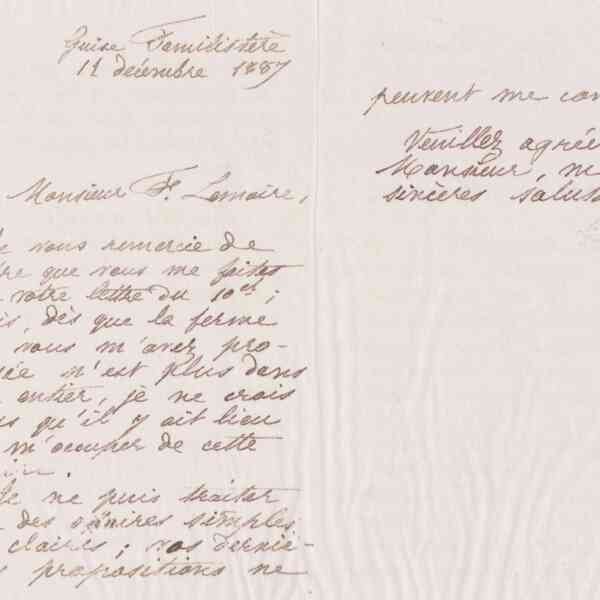 Guise Familistère
12 décembre 1887
Monsieur F. Lemaire,
Je vous remercie de
re que vous me faites
votre lettre du 10 ct;
is, dès que la ferme
vous m'avez pro-
sée n'est plus dans
entier, je ne crois
as qu'il y ait lieu
m'occuper de cette
Je ne puis traiter
des affaires simples
claires; vos derniè-
s propositions ne
peuvent me con
Veuillez agrée
Monsieur, me
sincères saluta